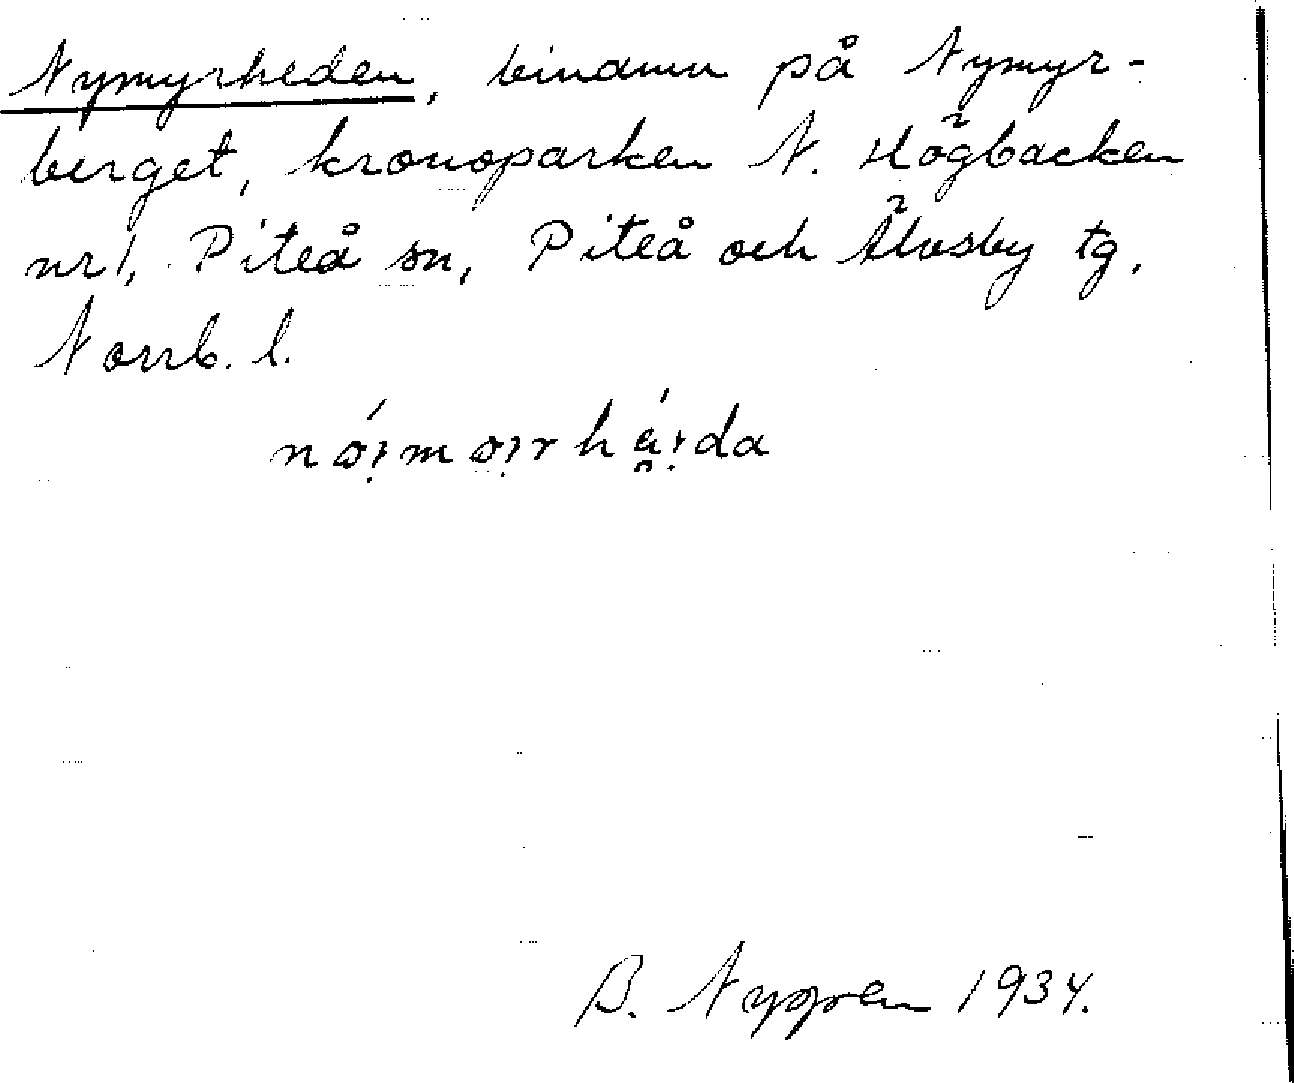 Nymyrheden, på Nymyr-
berget, kronoparken N. Högbacken
nr 1, Piteå sn, Piteå och Älvsby tg,
Norrb. l.
B. Nygren 1934.